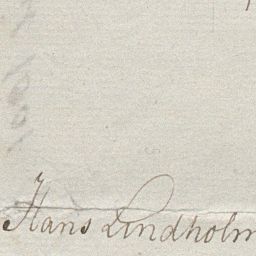 Hans Lindholm